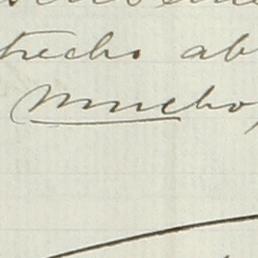 trecho ab
Mucho,